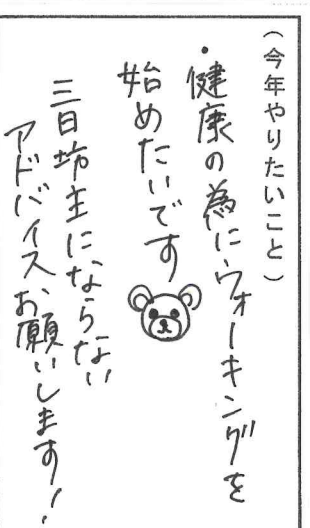 （今年やりたいこと）
・健康の為にウォーキングを
始めたいです
三日坊主にならない
アドバイス、お願いします！